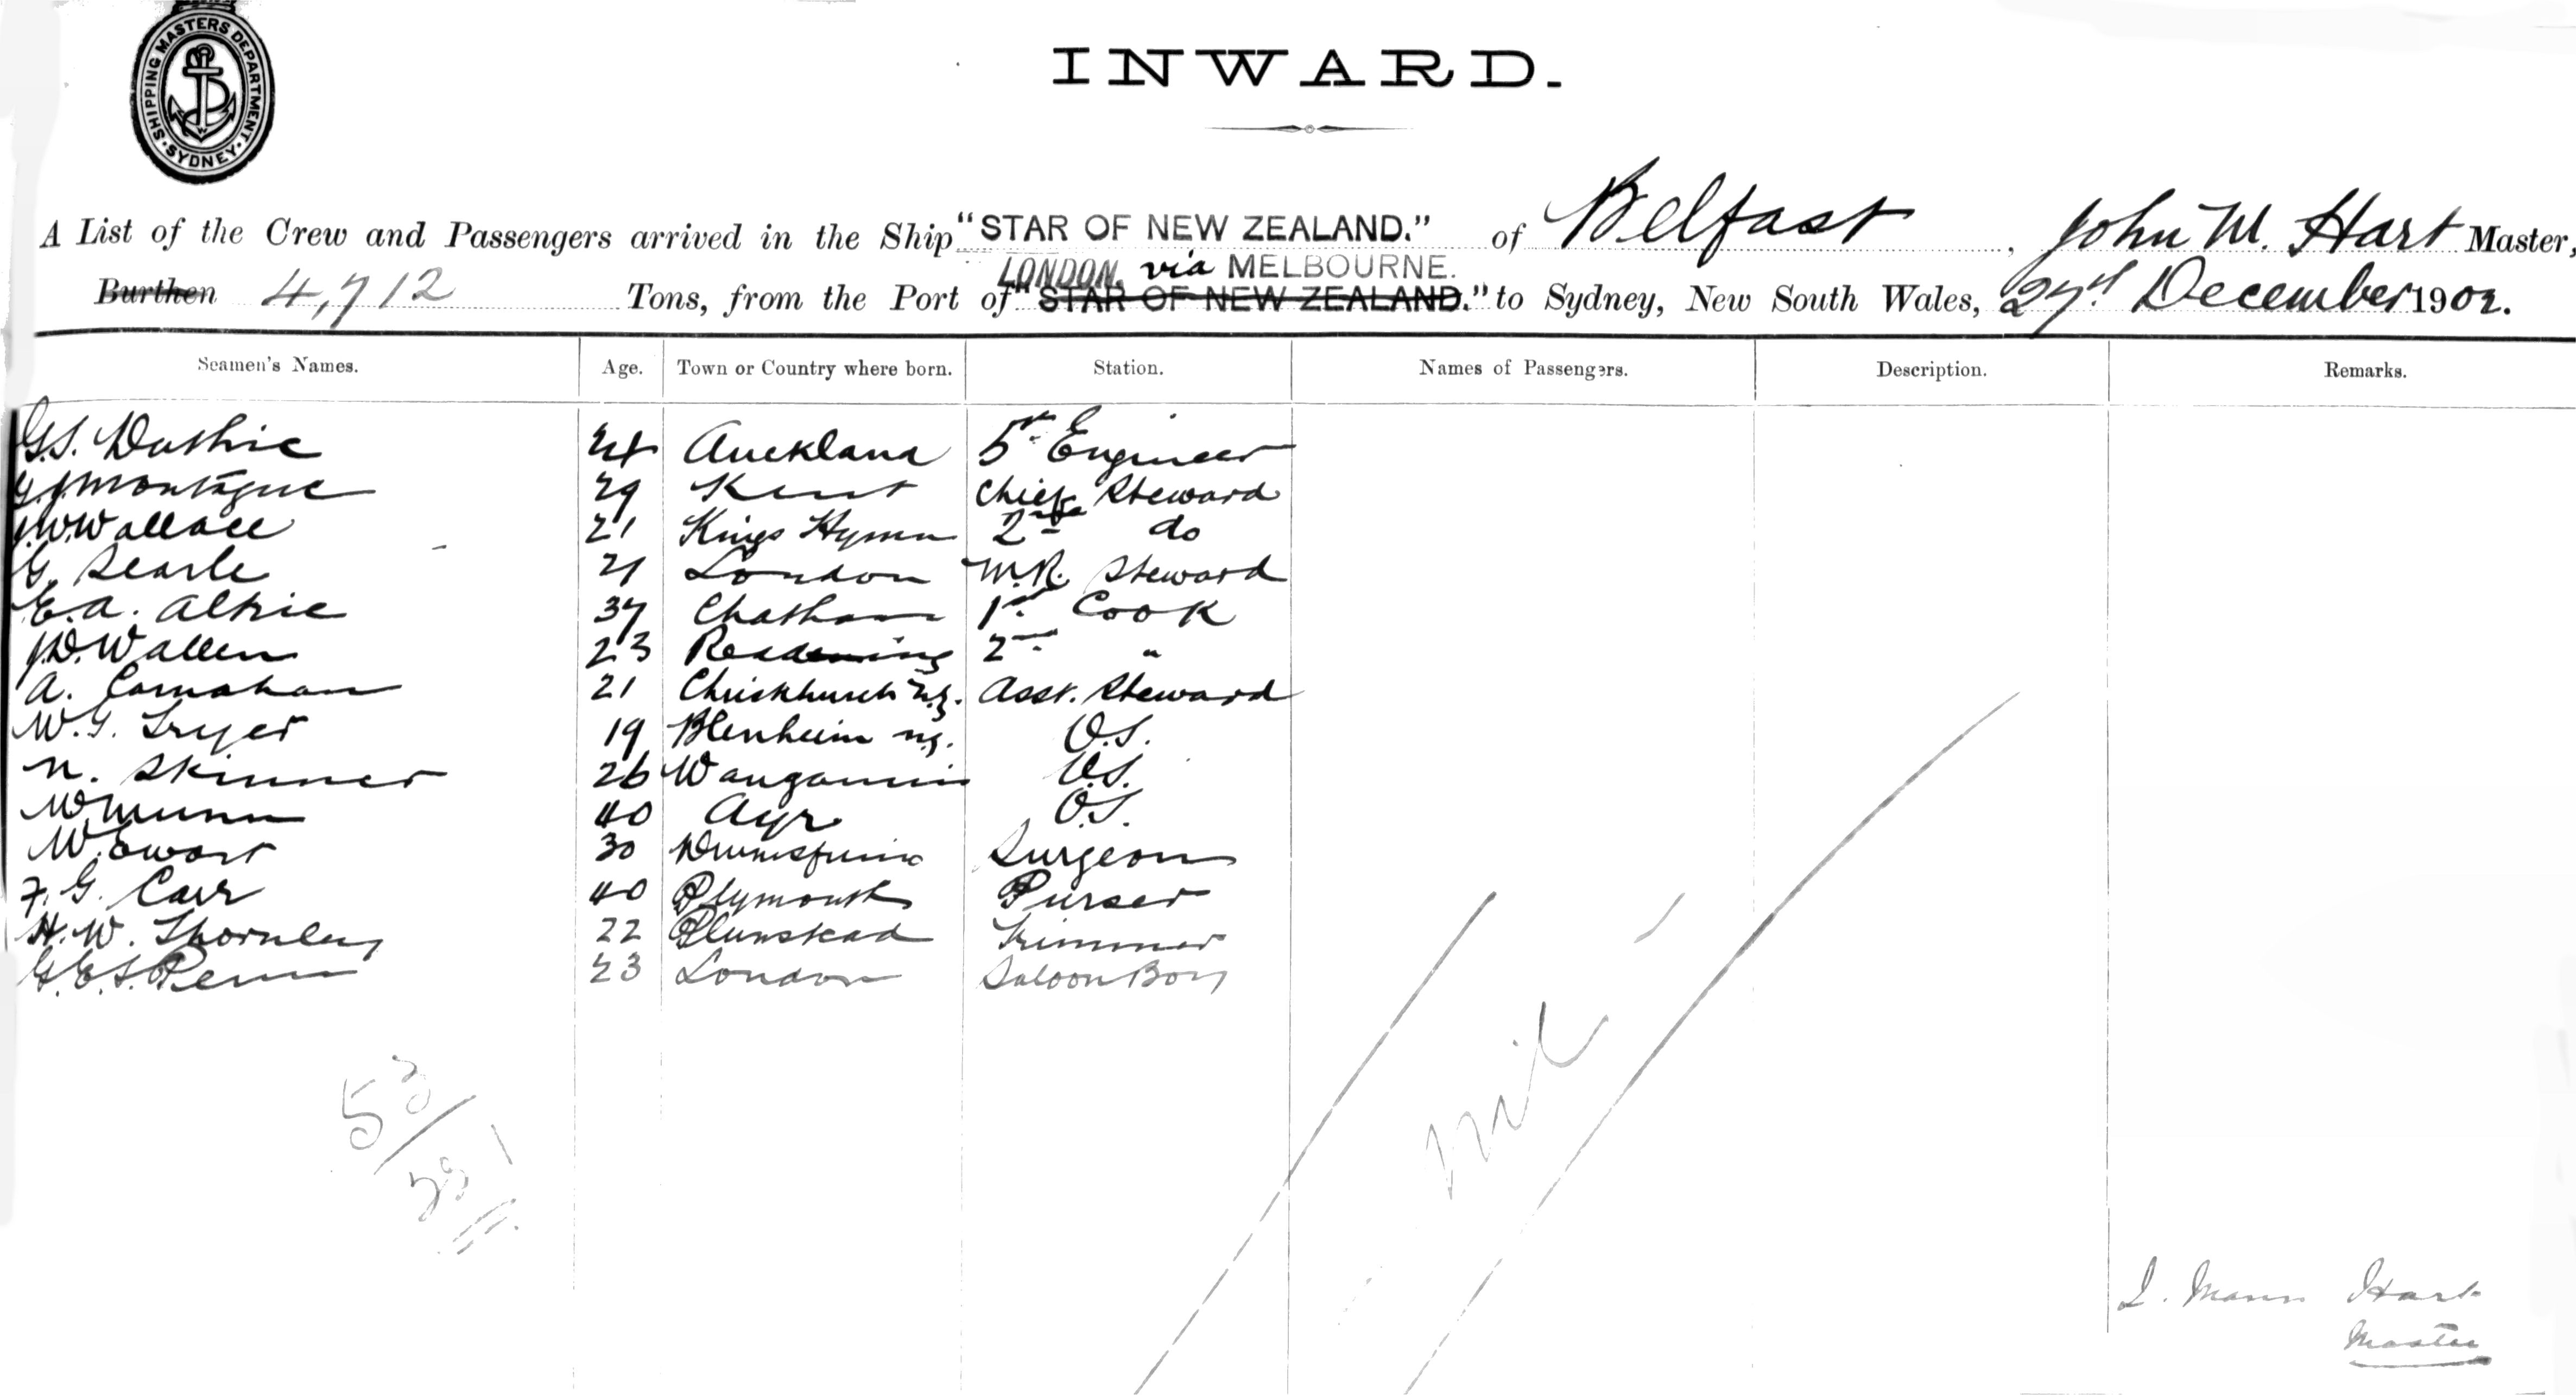 SHIPPING MASTERS DEPARTMENT · SYDNEY ·
INWARD.
A List of the Crew and Passengers arrived in the Ship "STAR OF NEW ZEALAND." of Belfast, John M. Hart Master,
LONDON, via MELBOURNE.
Burthen 4,712 Tons, from the Port of "STAR OF NEW ZEALAND." to Sydney, New South Wales, 27th December 1902.
Seamen's Names. Age. Town or Country where born. Station. Names of Passengers. Description. Remarks.
G.S. Duthie 24 Auckland 5th Engineer
Montague 29 Kent Chief Steward
J.W. Wallace 21 Kings Hymn 2nd do
G. Searle 21 London M.R. Steward
E.A. 37 Chatham 1st Cook
J.D. Wallen 23 Readening 2nd "
A. Carnahan 21 Christchurch N.Z. Asst. Steward
W.G. Fryer 19 Blenheim N.Z. O.S.
N. Skinner 26 Wanganui O.S.
W Munn 40 Ayr O.S.
W. Ewart 30 Surgeon
F. G. Carr 40 Plymouth Purser
H. W. Thornley 22 Plumstead Trimmer
G.E.S. Penn 23 London Saloon Boy
53
nil
J. Mann Hart
Master